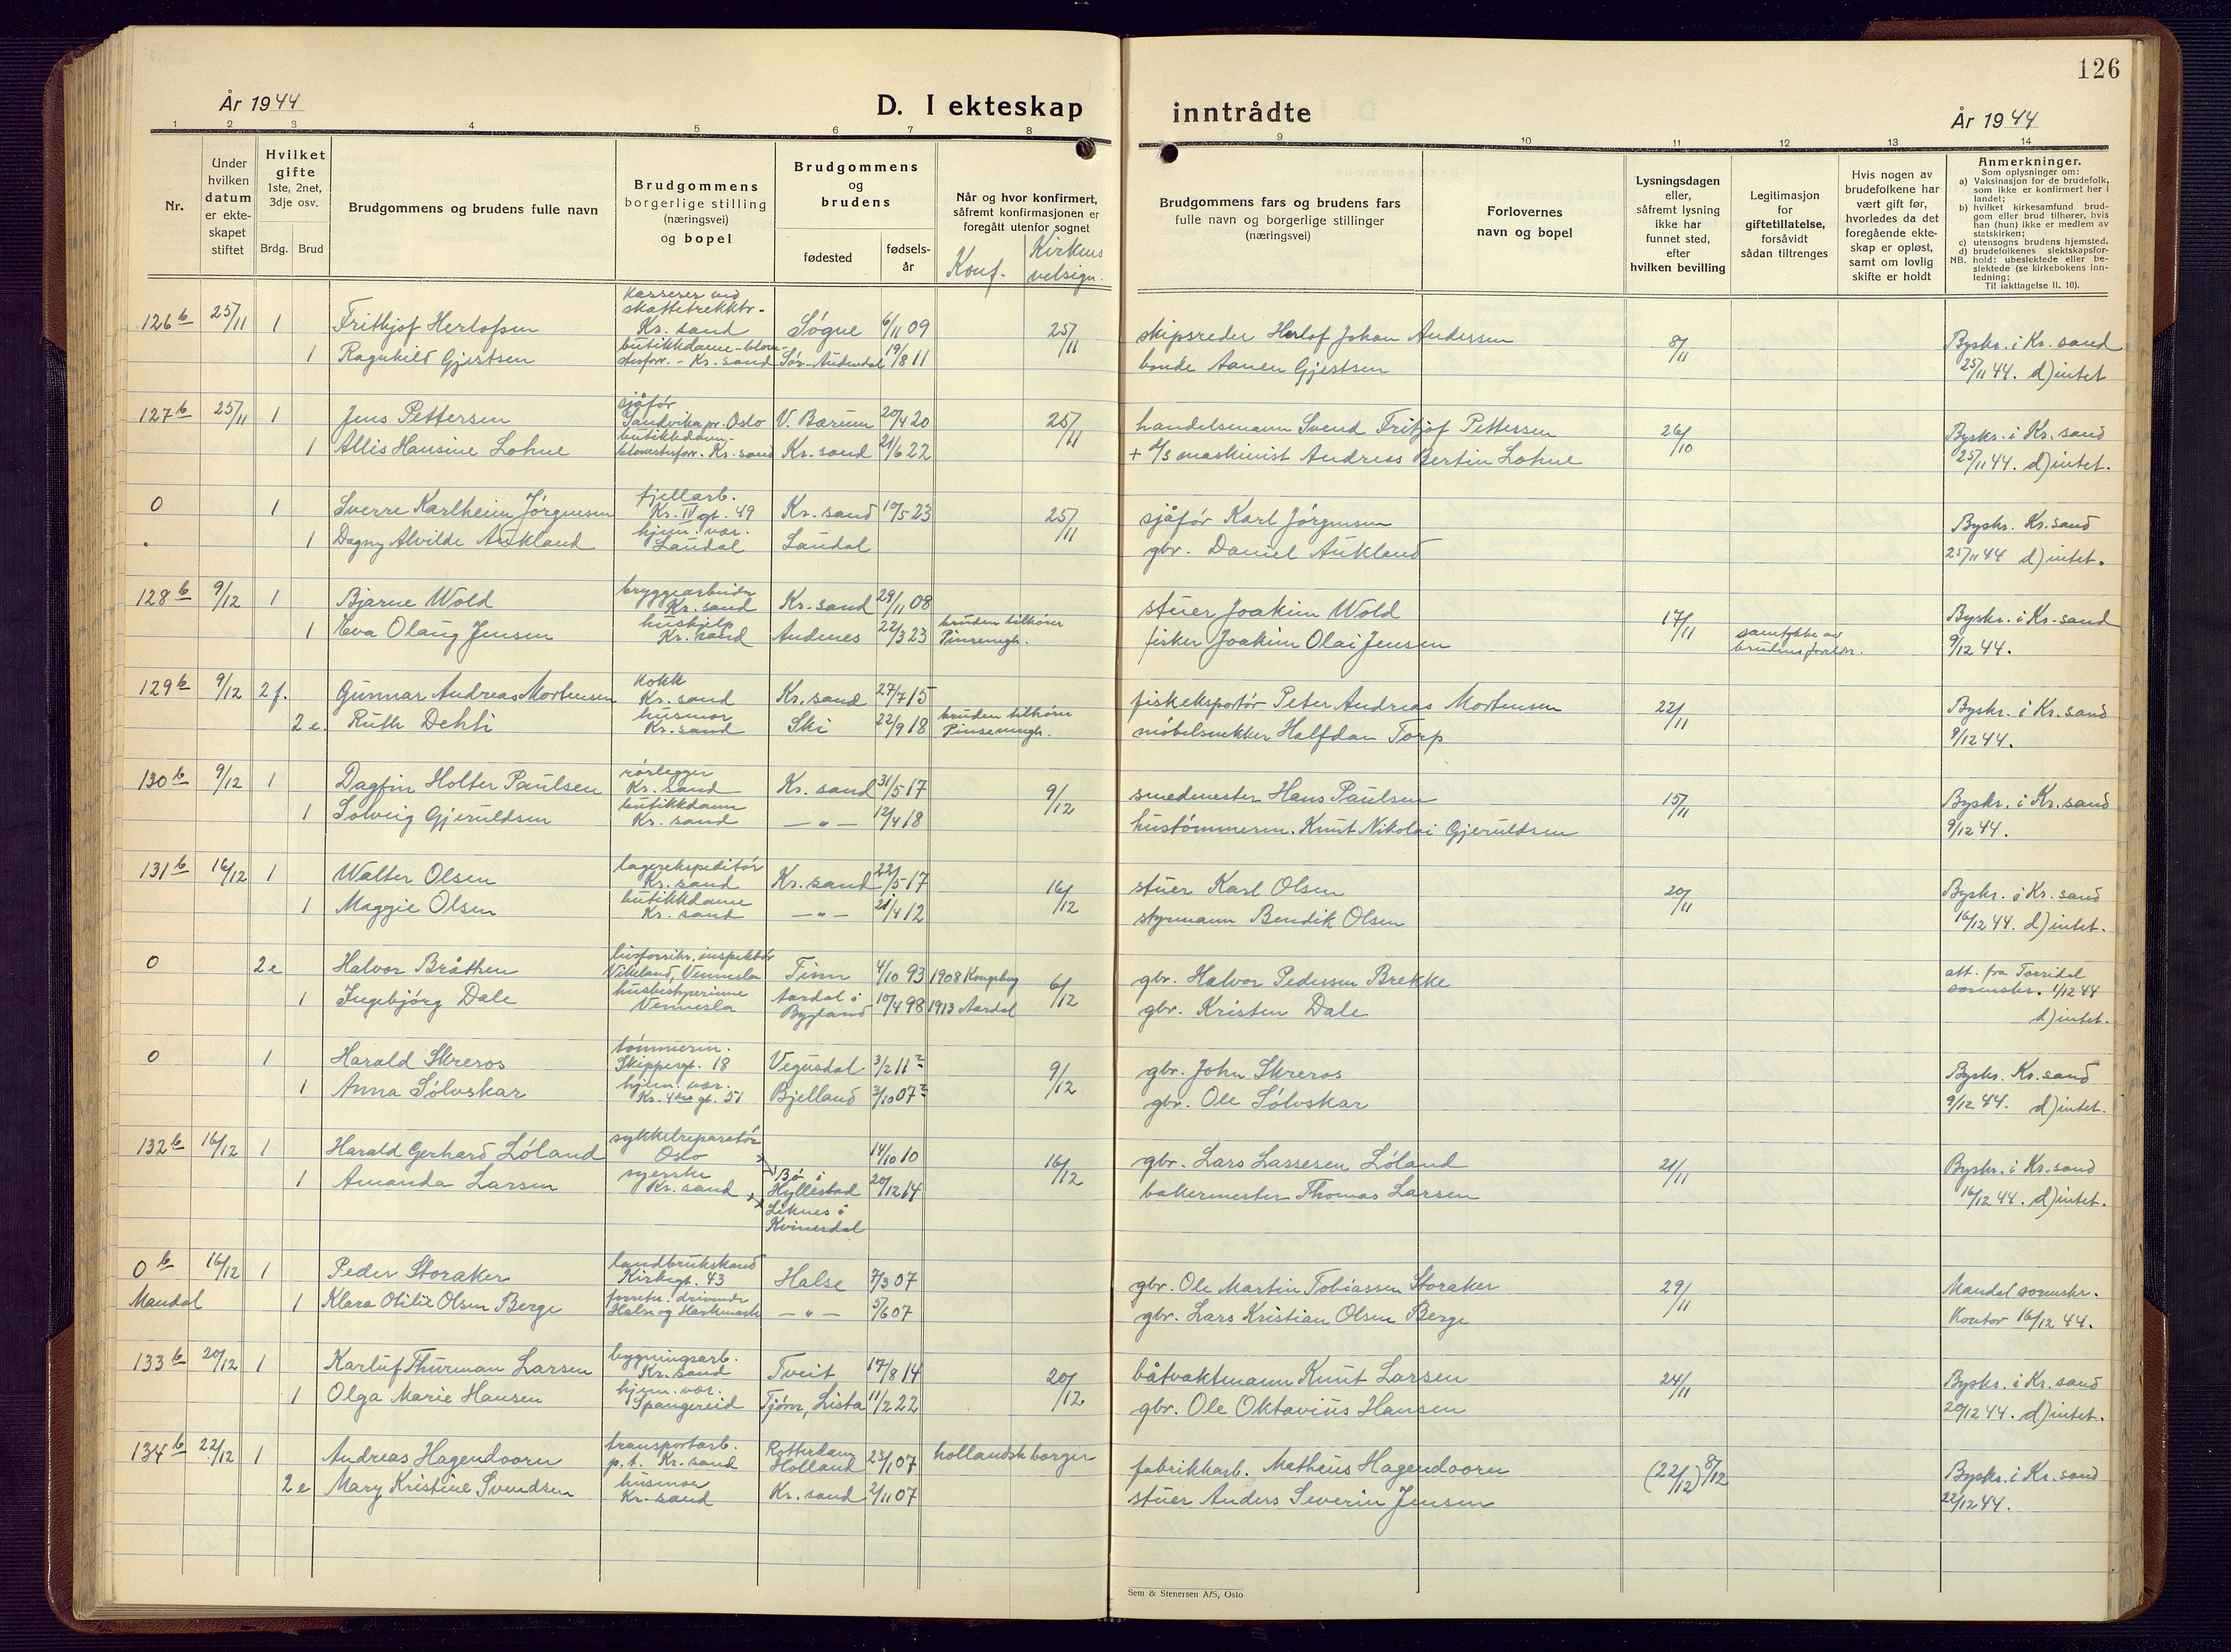 126
År 1944
D. I ekteskap inntrådte
År 1944
1 2 3 4 5 6 7 8 9 10 11 12 13 14
Nr.
Under hvilken datum er ekteskapet stiftet
Hvilket gifte 1ste, 2net, 3dje osv.
Brdg. Brud
Brudgommens og brudens fulle navn
Brudgommens borgerlige stilling (næringsvei) og bopel
Brudgommens og brudens
fødested
fødsels-år
Når og hvor konfirmert, såfremt konfirmasjonen er foregått utenfor sognet
Konf. Kirkens velsign.
Brudgommens fars og brudens fars fulle navn og borgerlige stillinger (næringsvei)
Forlovernes navn og bopel
Lysningsdagen eller, såfremt lysning ikke har funnet sted, efter hvilken bevilling
Legitimasjon for giftetillatelse, forsåvidt sådan tiltrenges
Hvis nogen av brudefolkene har vært gift før, hvorledes da det foregående ekteskap er opløst, samt om lovlig skifte er holdt
Anmerkninger.
Som oplysninger om:
a) Vaksinasjon for de brudefolk, som ikke er konfirmert her i landet;
b) hvilket kirkesamfund brudgom eller brud tilhører, hvis han (hun) ikke er medlem av statskirken;
c) utensogns brudens hjemsted.
d) brudefolkenes slektskapsforhold: ubeslektede eller beslektede (se kirkebokens innledning;
NB.
Til iakttagelse II. 10).
126 b 25/11 1 Fritkjof Herlofsen kasserer ved skattetrekktr- Kr. sand Søgne 6/11 09 25/11 skipsreder Herlof Johan Andersen 8/11 Byskr. i Kr. sand
1 Ragnhild Gjertsen butikkdame-blomsterforr. - Kr. sand Sør-Audnedal 19/8 11 bonde Aanen Gjertsen 25/11 44. d) intet
127 b 25/11 1 Jens Pettersen sjåfør Sandvika pr. Oslo V. Bærum 20/4 20 25/11 handelsmann Svend Fritjof Pettersen 26/10 Byskr. i Kr. sand
1 Allis Hansine Lohne butikkdame- blomsterforr. Kr. sand Kr. sand 21/6 22 + d/s maskinist Andreas Bertin Lohne 25/11 44. d) intet.
0 1 Sverre Karlheim Jørgensen fjellarb. Kr. IV gt. 49 Kr. sand 10/5 23 25/11 sjåfør Karl Jørgensen Byskr. Kr. sand
1 Dagny Alvilde Aukland hjem. vær. Laudal Laudal gbr. Daniel Aukland 25/11 44 d) intet.
128 b 9/12 1 Bjarne Wold bryggearbeider Kr. sand Kr. sand 29/11 08 stuer Joakim Wold 17/11 Byskr. i Kr. sand
1 Eva Olaug Jensen hushjelp Kr. sand Andenes 22/3 23 bruden tilhører Pinsemngh. fisker Joakim Olai Jensen samtykke av brudens foreldr. 9/12 44.
129 b 9/12 2 f. Gunnar Andreas Mortensen kokk Kr. sand Kr. sand 27/7 15 fiskeksportør Peter Andreas Mortensen 22/11 Byskr. i Kr. sand
2 e. Ruth Dehli husmor Kr. sand Ski 22/9 18 bruden tilhører Pinsemngh. møbelsnekker Halfdan Torp 9/12 44.
130 b 9/12 1 Dagfin Holter Paulsen rørlegger Kr. sand Kr. sand 31/5 17 9/12 smedmester Hans Paulsen 15/11 Byskr. i Kr. sand
1 Solveig Gjeruldsen butikkdame Kr. sand — " — 12/4 18 hustømmerm. Knut Nikolai Gjeruldsen 9/12 44.
131 b 16/12 1 Walter Olsen lagerekspeditør Kr. sand Kr. sand 22/5 17 16/12 stuer Karl Olsen 20/11 Byskr. i Kr. sand
1 Maggie Olsen butikkdame Kr. sand — " — 21/4 12 styrmann Bendik Olsen 16/12 44. d) intet.
0 2 e Halvor Bråthen livsforsikr. inspektør Vikeland, Vennesla Tinn 4/10 93 1908 Kongsberg 6/12 gbr. Halvor Pedersen Brekke att. fra Torridal
1 Ingebjørg Dale husbestyrerinne Vennesla Aardal i Bygland 10/4 98 1913 Aardal gbr. Kristen Dale sorenskr. 1/12 44 d) intet.
0 1 Harald Skreros tømmerm. Skippergt. 18 Vegusdal 3/2 11 9/12 gbr. John Skreros Byskr. Kr. sand
1 Anna Sølvskar hjem. vær. Kr. 4des gt. 51 Bjelland 3/10 07 gbr. Ole Sølvskar 9/12 44. d) intet.
132 b 16/12 1 Harald Gerhard Løland sykkelreparatør Oslo Bø i Hyllestad 14/10 10 16/12 gbr. Lars Lassesen Løland 21/11 Byskr. i Kr. sand
1 Amanda Larsen syerske Kr. sand Liknes i Kvinesdal 20/12 14 bakermester Thomas Larsen 16/12 44. d) intet.
0 b 16/12 1 Peder Storaker landbrukskand Kirkegt. 43 Halse 7/3 07 gbr. Ole Martin Tobiassen Storaker 29/11 Mandal sorenskr.
Mandal 1 Klara Otilie Olsen Berge forretn. drivende Halse og Harkmark — " — 5/6 07 gbr. Lars Kristian Olsen Berge Kontor 16/12 44.
133 b 20/12 1 Karluf Thurman Larsen bygningsarb. Kr. sand Tveit 17/8 14 20/12 båtvaktmann Knut Larsen 24/11 Byskr. i Kr. sand
1 Olga Marie Hansen hjem. vær. Spangereid Tjørn, Lista 11/2 22 gbr. Ole Oktavius Hansen 20/12 44. d) intet.
134 b 22/12 1 Andreas Hagendoorn transportarb. p.t. Kr. sand Rotterdam Holland 23/1 07 hollandsk borger fabrikkarb. Matheus Hagendoorn (22/12) 8/12 Byskr. i Kr. sand
2 e Mary Kristine Svendsen husmor Kr. sand Kr. sand 2/11 07 stuer Anders Severin Jensen 22/12 44.
Sem & Stenersen A/S, Oslo